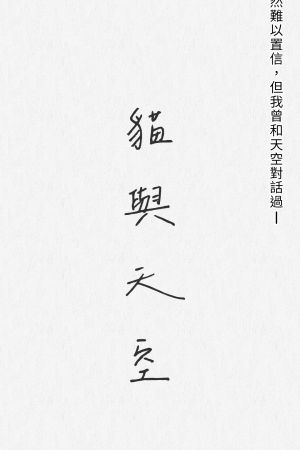 然難以置信，但我曾和天空對話過—
貓與天空